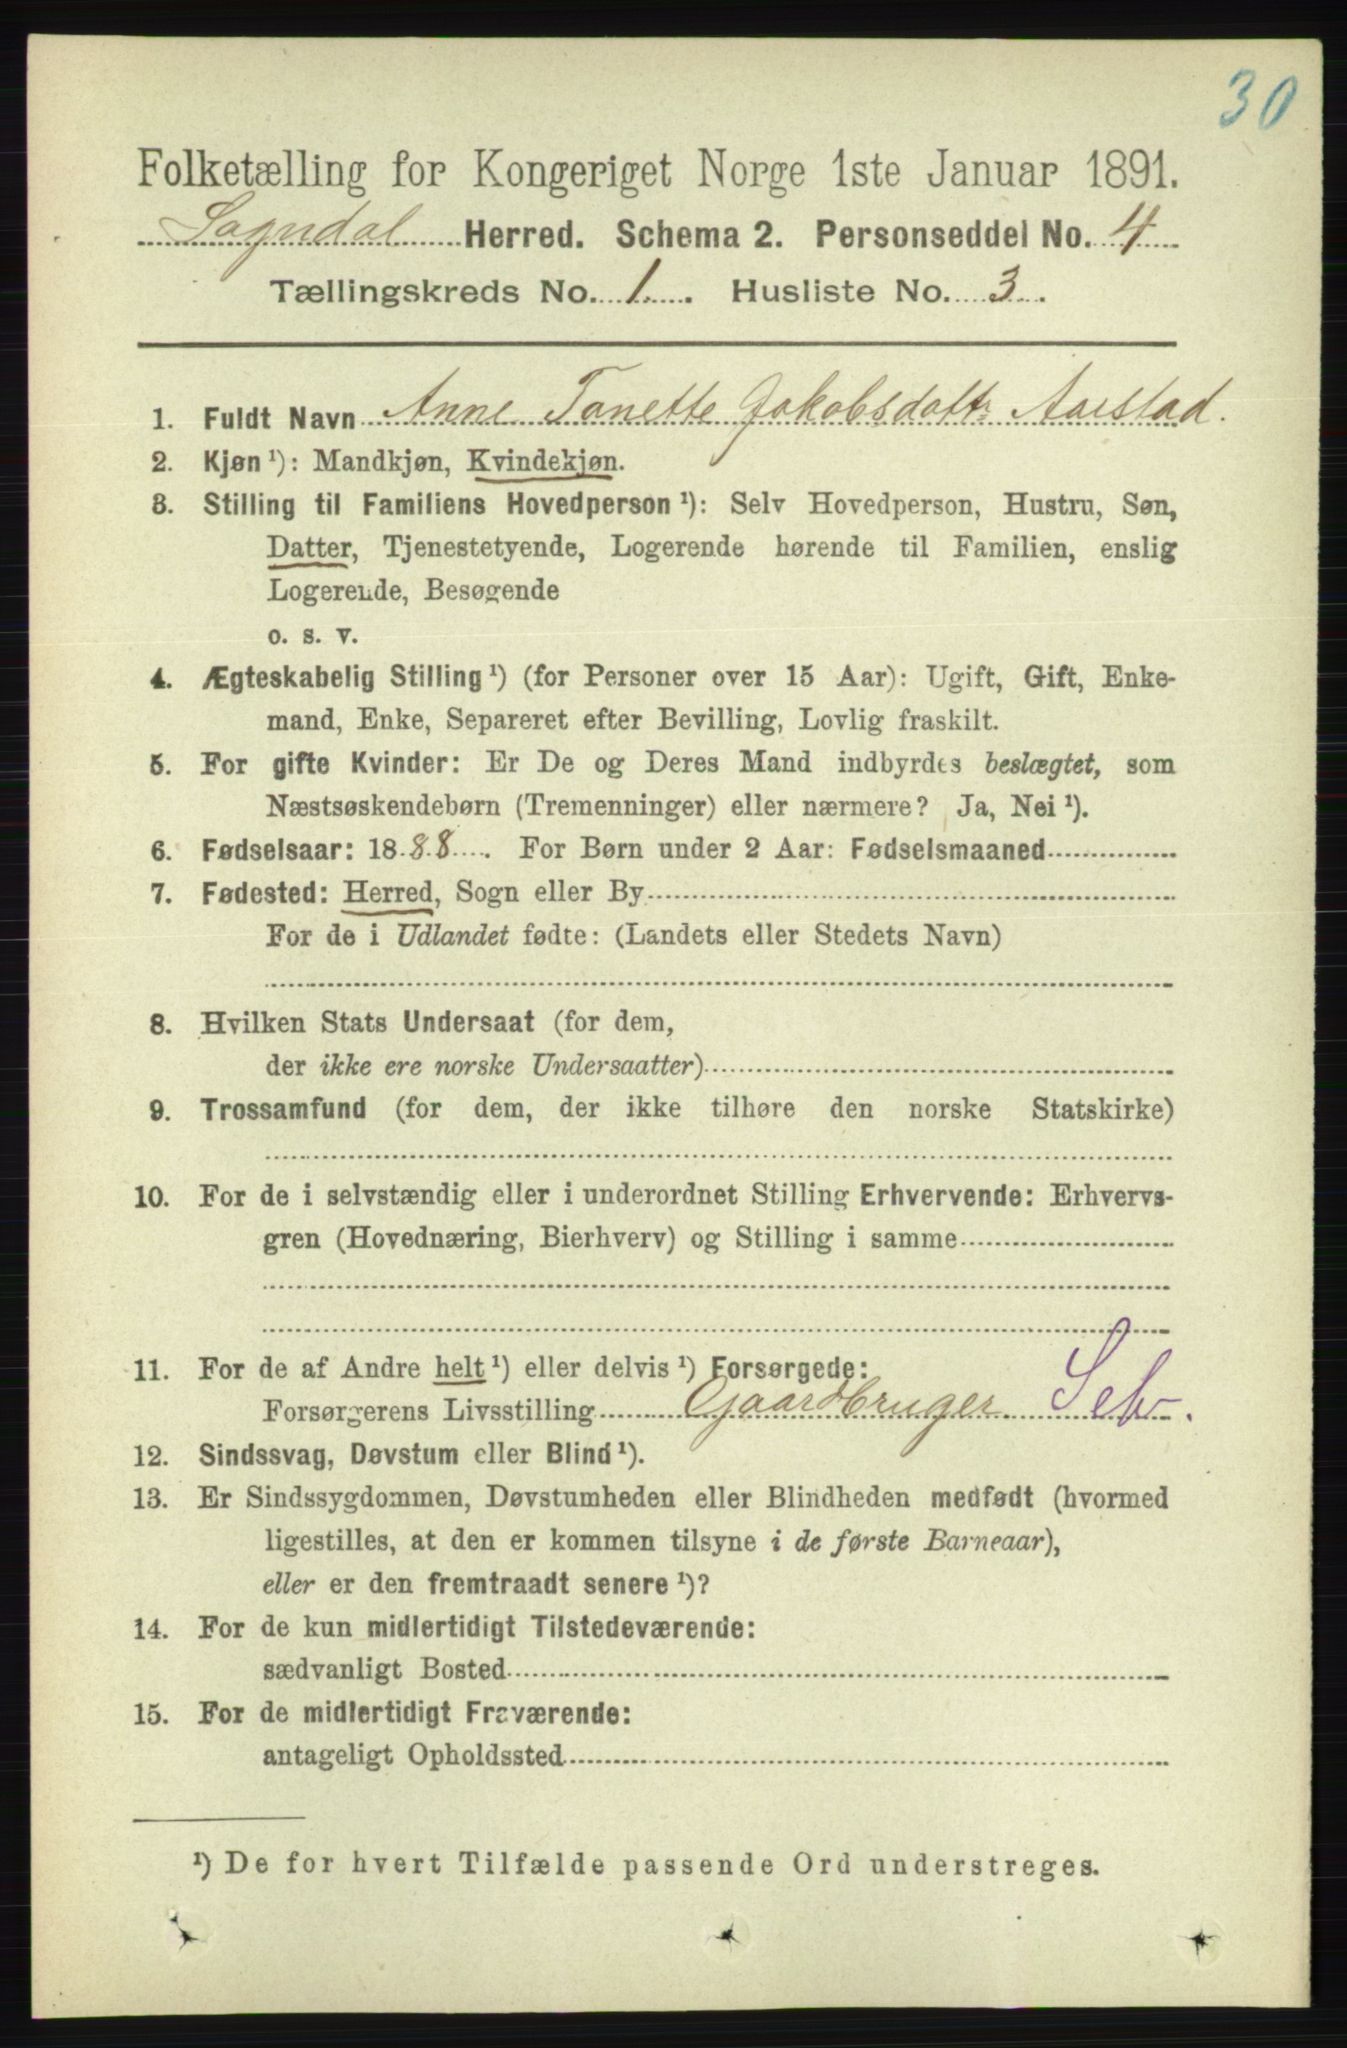 30
Folketælling for Kongeriget Norge 1ste Januar 1891.
Sogndal Herred. Schema 2. Personseddel No. 4
Tællingskreds No. 1. Husliste No. 3.
1. Fuldt Navn Anne Tonette Jakobsdatt: Aarstad.
2. Kjøn ¹): Mandkjøn, Kvindekjøn.
3. Stilling til Familiens Hovedperson ¹): Selv Hovedperson, Hustru, Søn,
Datter, Tjenestetyende, Logerende hørende til Familien, enslig
Logerende, Besøgende
o. s. v.
4. Ægteskabelig Stilling ¹) (for Personer over 15 Aar): Ugift, Gift, Enke-
mand, Enke, Separeret efter Bevilling, Lovlig fraskilt.
5. For gifte Kvinder: Er De og Deres Mand indbyrdes beslægtet, som
Næstsøskendebørn (Tremenninger) eller nærmere? Ja, Nei ¹).
6. Fødselsaar: 1888. For Børn under 2 Aar: Fødselsmaaned
7. Fødested: Herred, Sogn eller By
For de i Udlandet fødte: (Landets eller Stedets Navn)
8. Hvilken Stats Undersaat (for dem,
der ikke ere norske Undersaatter)
9. Trossamfund (for dem, der ikke tilhøre den norske Statskirke)
10. For de i selvstændig eller i underordnet Stilling Erhvervende: Erhvervs-
gren (Hovednæring, Bierhverv) og Stilling i samme
11. For de af Andre helt ¹) eller delvis ¹) Forsørgede:
Forsørgerens Livsstilling Gaardbruger Selv.
12. Sindssvag, Døvstum eller Blind ¹).
13. Er Sindssygdommen, Døvstumheden eller Blindheden medfødt (hvormed
ligestilles, at den er kommen tilsyne i de første Barneaar),
eller er den fremtraadt senere ¹)?
14. For de kun midlertidigt Tilstedeværende:
sædvanligt Bosted
15. For de midlertidigt Fraværende:
antageligt Opholdssted
¹) De for hvert Tilfælde passende Ord understreges.